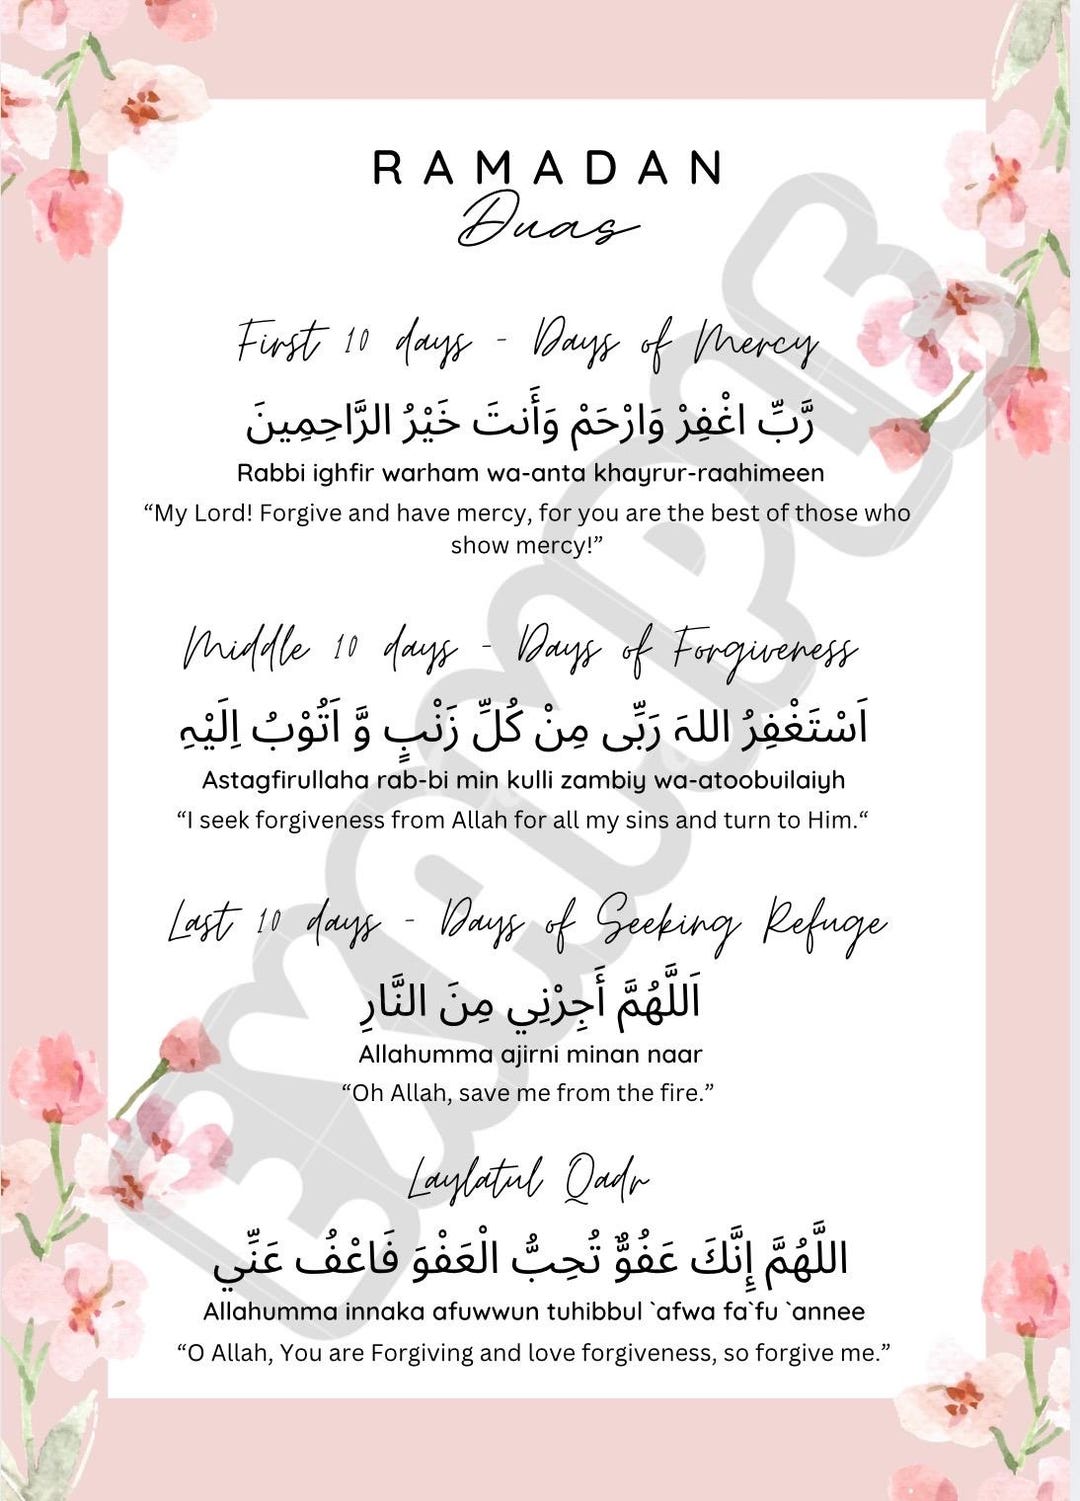 RAMADAN
Duas
First 10 days - Days of Mercy
رَّبِّ اغْفِرْ وَارْحَمْ وَأَنتَ خَيْرُ الرَّاحِمِينَ
Rabbi ighfir warham wa-anta khayrur-raahimeen
“My Lord! Forgive and have mercy, for you are the best of those who
show mercy!”
Middle 10 days - Days of Forgiveness
اَسْتَغْفِرُ اللہَ رَبِّى مِنْ كُلِّ زَنْبٍ وَّ اَتُوْبُ اِلَيْہِ
Astagfirullaha rab-bi min kulli zambiy wa-atoobuilaiyh
“I seek forgiveness from Allah for all my sins and turn to Him.“
Last 10 days - Days of Seeking Refuge
اَللَّهُمَّ أَجِرْنِي مِنَ النَّارِ
Allahumma ajirni minan naar
“Oh Allah, save me from the fire.”
Laylatul Qadr
اللَّهُمَّ إِنَّكَ عَفُوٌّ تُحِبُّ الْعَفْوَ فَاعْفُ عَنِّي
Allahumma innaka afuwwun tuhibbul `afwa fa`fu `annee
“O Allah, You are Forgiving and love forgiveness, so forgive me.”
EXAMPLE